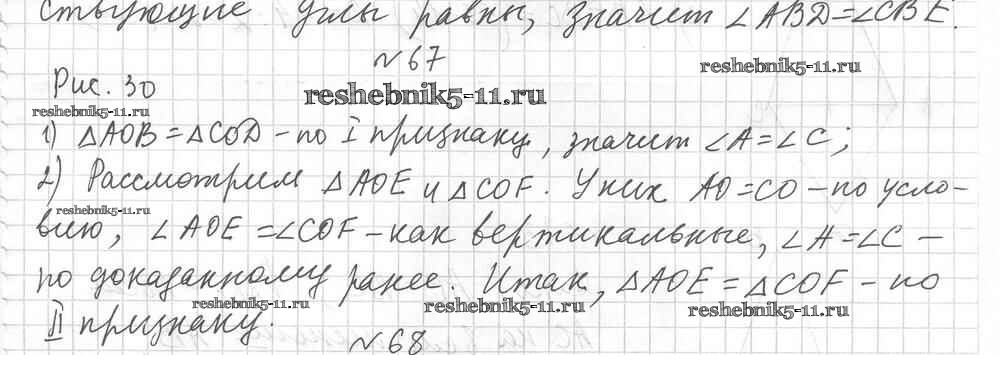 ствующие углы равны, значит ∠ABD=∠CBE.
№67
reshebnik5-11.ru
Рис. 30
reshebnik5-11.ru
reshebnik5-11.ru
1) △AOB=△COD – по I признаку, значит ∠A=∠C;
2) Рассмотрим △AOE и △COF. У них AO=CO – по усло-
reshebnik5-11.ru
вию, ∠AOE=∠COF – как вертикальные, ∠A=∠C –
по доказанному ранее. Итак, △AOE=△COF – по
reshebnik5-11.ru
reshebnik5-11.ru
reshebnik5-11.ru
II признаку.
№68